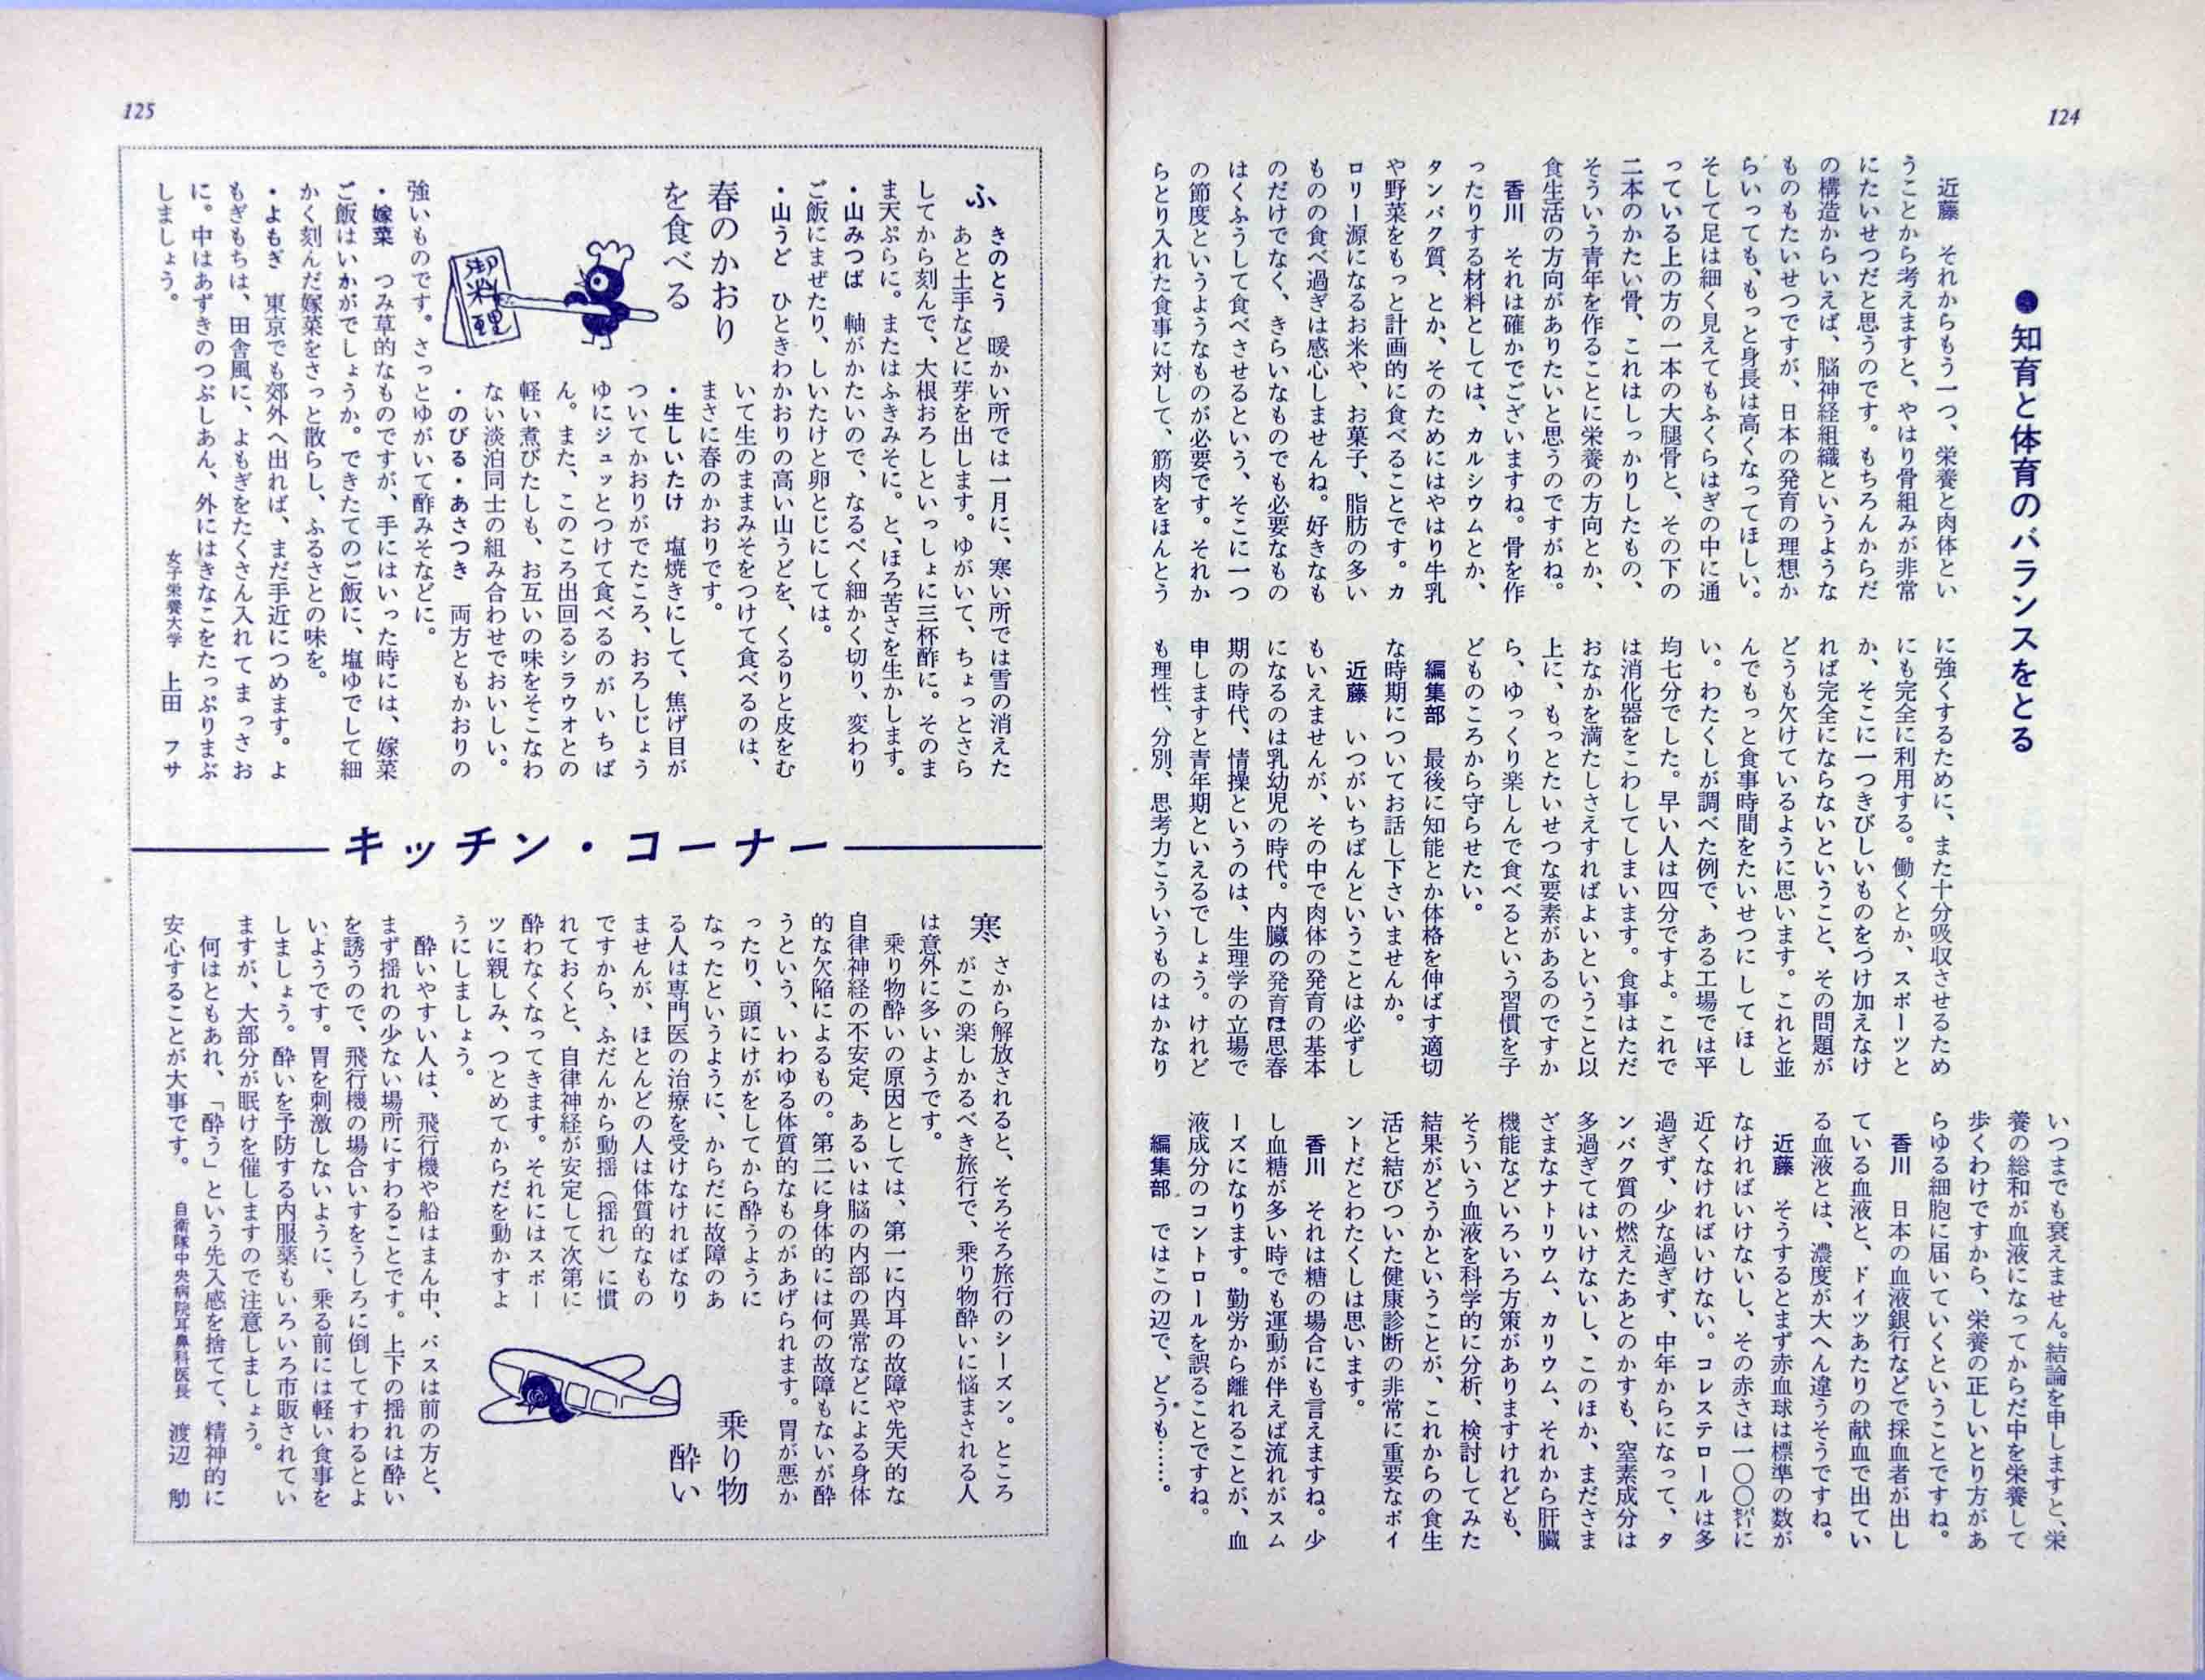 124
●知育と体育のバランスをとる
近藤　それからもう一つ、栄養と肉体とい
うことから考えますと、やはり骨組みが非常
にたいせつだと思うのです。もちろんからだ
の構造からいえば、脳神経組織というような
ものもたいせつですが、日本の発育の理想か
らいっても、もっと身長は高くなってほしい。
そして足は細く見えてもふくらはぎの中に通
っている上の方の一本の大腿骨と、その下の
二本のかたい骨、これはしっかりしたもの、
そういう青年を作ることに栄養の方向とか、
食生活の方向がありたいと思うのですがね。
香川　それは確かでございますね。骨を作
ったりする材料としては、カルシウムとか、
タンパク質、とか、そのためにはやはり牛乳
や野菜をもっと計画的に食べることです。カ
ロリー源になるお米や、お菓子、脂肪の多い
ものの食べ過ぎは感心しませんね。好きなも
のだけでなく、きらいなものでも必要なもの
はくふうして食べさせるという、そこに一つ
の節度というようなものが必要です。それか
らとり入れた食事に対して、筋肉をほんとう
に強くするために、また十分吸収させるため
にも完全に利用する。働くとか、スポーツと
か、そこに一つきびしいものをつけ加えなけ
れば完全にならないということ、その問題が
どうも欠けているように思います。これと並
んでもっと食事時間をたいせつにしてほし
い。わたくしが調べた例で、ある工場では平
均七分でした。早い人は四分ですよ。これで
は消化器をこわしてしまいます。食事はただ
おなかを満たしさえすればよいということ以
上に、もっとたいせつな要素があるのですか
ら、ゆっくり楽しんで食べるという習慣を子
どものころから守らせたい。
編集部　最後に知能とか体格を伸ばす適切
な時期についてお話し下さいませんか。
近藤　いつがいちばんということは必ずし
もいえませんが、その中で肉体の発育の基本
になるのは乳幼児の時代。内臓の発育は思春
期の時代、情操というのは、生理学の立場で
申しますと青年期といえるでしょう。けれど
も理性、分別、思考力こういうものはかなり
いつまでも衰えません。結論を申しますと、栄
養の総和が血液になってからだ中を栄養して
歩くわけですから、栄養の正しいとり方があ
らゆる細胞に届いていくということですね。
香川　日本の血液銀行などで採血者が出し
ている血液と、ドイツあたりの献血で出てい
る血液とは、濃度が大へん違うそうですね。
近藤　そうするとまず赤血球は標準の数が
なければいけないし、その赤さは一〇〇㌫に
近くなければいけない。コレステロールは多
過ぎず、少な過ぎず、中年からになって、タ
ンパク質の燃えたあとのかすも、窒素成分は
多過ぎてはいけないし、このほか、まださま
ざまなナトリウム、カリウム、それから肝臓
機能などいろいろ方策がありますけれども、
そういう血液を科学的に分析、検討してみた
結果がどうかということが、これからの食生
活と結びついた健康診断の非常に重要なポイ
ントだとわたくしは思います。
香川　それは糖の場合にも言えますね。少
し血糖が多い時でも運動が伴えば流れがスム
ーズになります。勤労から離れることが、血
液成分のコントロールを誤ることですね。
編集部　ではこの辺で、どうも……。
125
ふきのとう　暖かい所では一月に、寒い所では雪の消えた
あと土手などに芽を出します。ゆがいて、ちょっとさら
してから刻んで、大根おろしといっしょに三杯酢に。そのま
ま天ぷらに。またはふきみそに。と、ほろ苦さを生かします。
・山みつば　軸がかたいので、なるべく細かく切り、変わり
ご飯にまぜたり、しいたけと卵とじにしては。
・山うど　ひときわかおりの高い山うどを、くるりと皮をむ
いて生のままみそをつけて食べるのは、
まさに春のかおりです。
春のかおり
を食べる
御料理
・生しいたけ　塩焼きにして、焦げ目が
ついてかおりがでたころ、おろしじょう
ゆにジュッとつけて食べるのがいちば
ん。また、このころ出回るシラウオとの
軽い煮びたしも、お互いの味をそこなわ
ない淡泊同士の組み合わせでおいしい。
・のびる・あさつき　両方ともかおりの
強いものです。さっとゆがいて酢みそなどに。
・嫁菜　つみ草的なものですが、手にはいった時には、嫁菜
ご飯はいかがでしょうか。できたてのご飯に、塩ゆでして細
かく刻んだ嫁菜をさっと散らし、ふるさとの味を。
・よもぎ　東京でも郊外へ出れば、まだ手近につめます。よ
もぎもちは、田舎風に、よもぎをたくさん入れてまっさお
に。中はあずきのつぶしあん、外にはきなこをたっぷりまぶ
しましょう。
女子栄養大学　上田　フサ
キッチン・コーナー
寒さから解放されると、そろそろ旅行のシーズン。ところ
がこの楽しかるべき旅行で、乗り物酔いに悩まされる人
は意外に多いようです。
乗り物酔いの原因としては、第一に内耳の故障や先天的な
自律神経の不安定、あるいは脳の内部の異常などによる身体
的な欠陥によるもの。第二に身体的には何の故障もないが酔
うという、いわゆる体質的なものがあげられます。胃が悪か
ったり、頭にけがをしてから酔うように
なったというように、からだに故障のあ
る人は専門医の治療を受けなければなり
ませんが、ほとんどの人は体質的なもの
ですから、ふだんから動揺（揺れ）に慣
れておくと、自律神経が安定して次第に
酔わなくなってきます。それにはスポー
ツに親しみ、つとめてからだを動かすよ
うにしましょう。
乗り物
酔い
酔いやすい人は、飛行機や船はまん中、バスは前の方と、
まず揺れの少ない場所にすわることです。上下の揺れは酔い
を誘うので、飛行機の場合いすをうしろに倒してすわるとよ
いようです。胃を刺激しないように、乗る前には軽い食事を
しましょう。酔いを予防する内服薬もいろいろ市販されてい
ますが、大部分が眠けを催しますので注意しましょう。
何はともあれ、「酔う」という先入感を捨てて、精神的に
安心することが大事です。
自衛隊中央病院耳鼻科医長　渡辺　勈